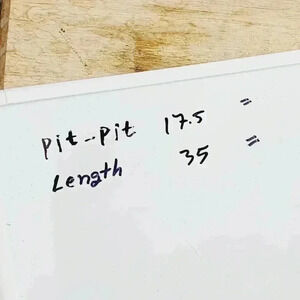 pit--pit 17.5 =
Length 35 =